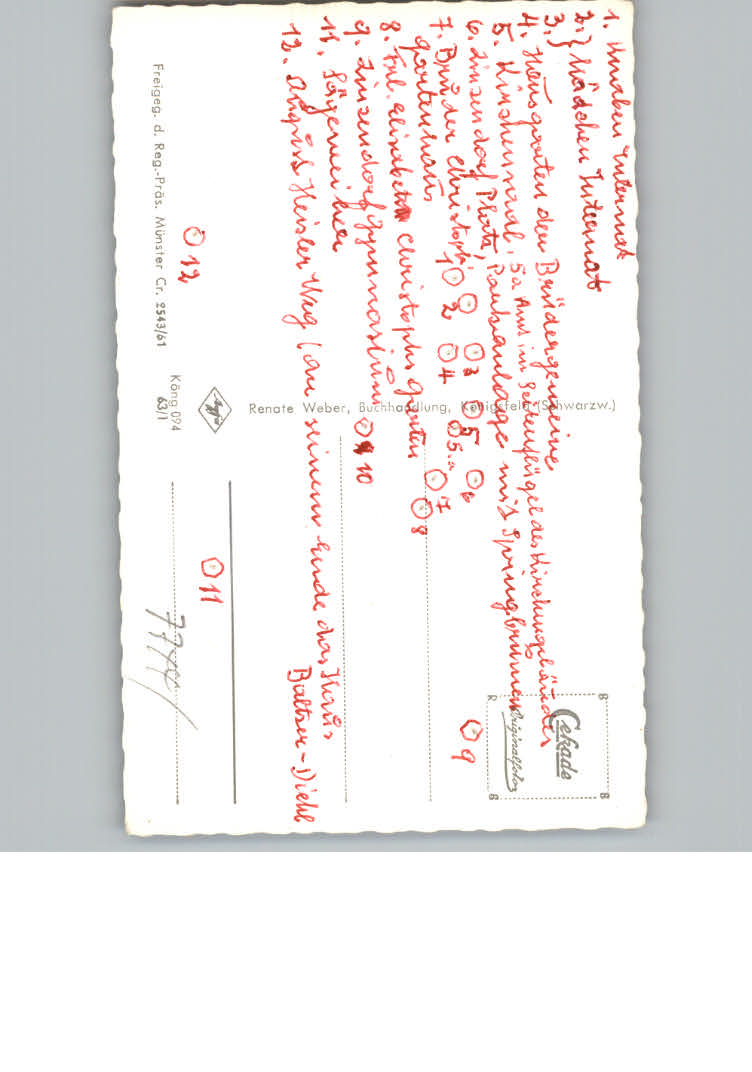 1. Knaben Internat
2.} Mädchen Internat
3.
4. Hausgarten der Brüdergemeine
5. Kirchensaal, 5a Amt im Seitenflügel des Kirchengebäudes
6. Zinzendorf Platz, Parkanlage mit Springbrunnen
7. Brüder Christoph.
gartenhaus
8. Frl. Elisabeth Christophs Garten
9. Zinzendorfgymnasium
11. Sägemeiher
12. August Heisler Weg (an seinem Ende das Haus
Baltzer-Diehl
1 2
3
4
5
5.a
6
7
8
9
10
11
12
Cekade
Originalfoto
Renate Weber, Buchhandlung, Königsfeld (Schwarzw.)
Agfa
Köng 094
63/1
Freigeg. d. Reg.-Präs. Münster Cr. 2543/61